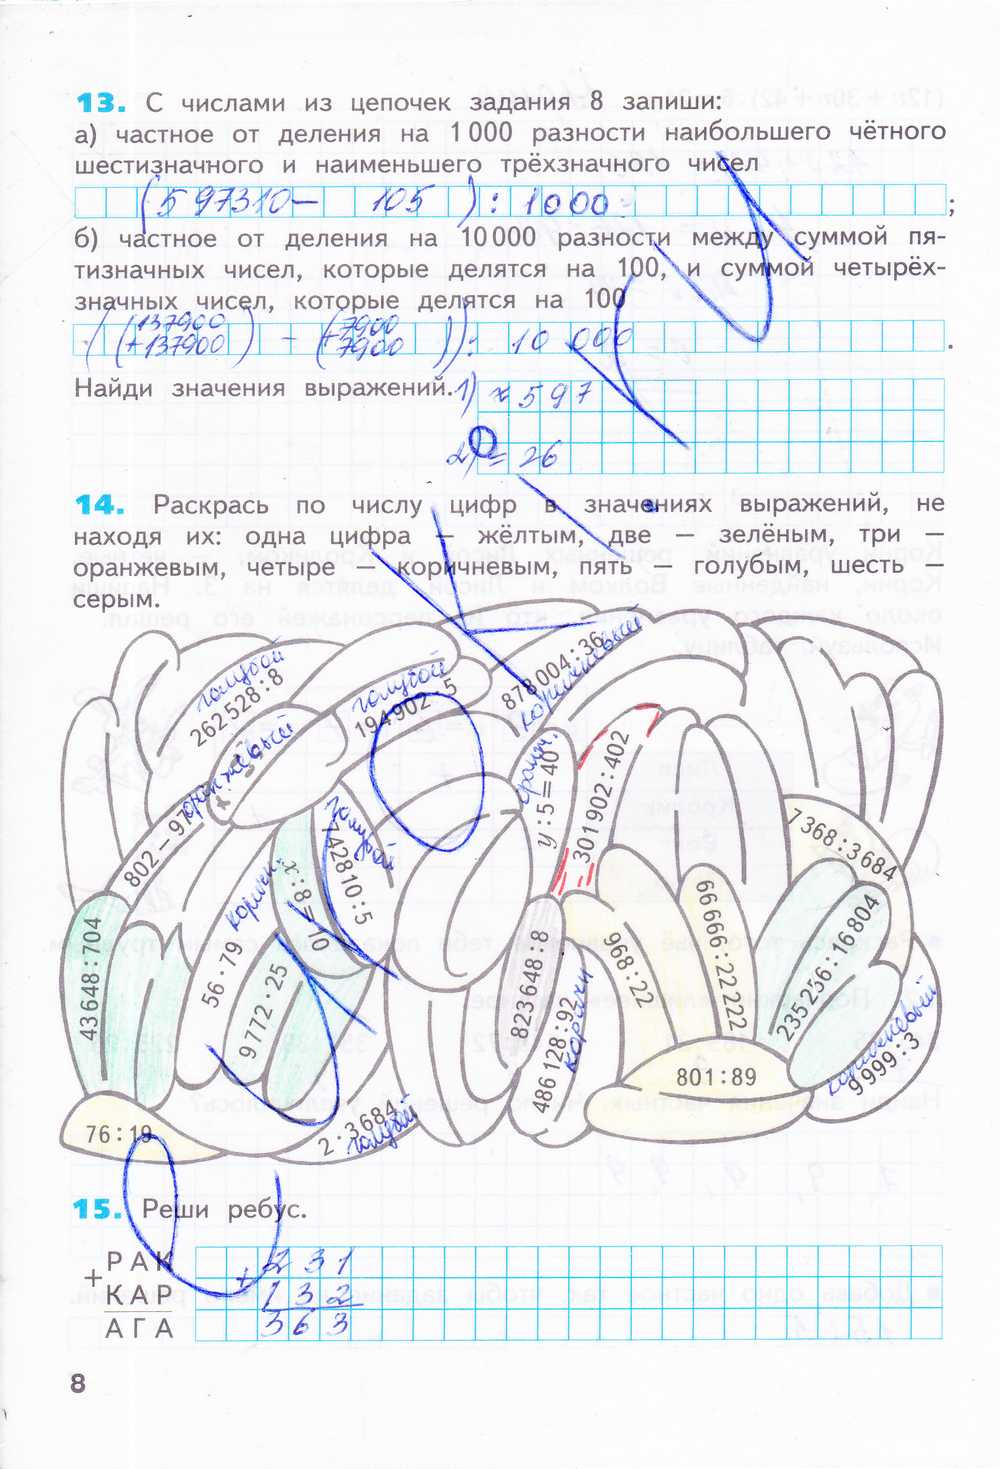 13. С числами из цепочек задания 8 запиши:
а) частное от деления на 1 000 разности наибольшего чётного
шестизначного и наименьшего трёхзначного чисел
(597310 — 105) : 1000 ;
б) частное от деления на 10 000 разности между суммой пя-
тизначных чисел, которые делятся на 100, и суммой четырёх-
значных чисел, которые делятся на 100
137900 7900
((+137900) – (7900)) : 10 000 .
Найди значения выражений. 1) 597
2) = 26
14. Раскрась по числу цифр в значениях выражений, не
находя их: одна цифра — жёлтым, две — зелёным, три —
оранжевым, четыре — коричневым, пять — голубым, шесть —
серым.
голубой
262 528 : 8
голубой
194 902 5
878 004 : 36
коричневый
оранжевый
802 – 97
голубой
742 810 : 5
x : 8 =
у : 5 = 40
301 902 : 402
7 368 : 3 684
43 648 : 704
коричн.
56 · 79
9 772 · 25
823 648 : 8
486 128 : 92
коричн
968 : 22
66 666 : 22 222
235 256 : 16 804
коричневый
9 999 : 3
801 : 89
76 : 19
2 · 3 684
голубой
15. Реши ребус.
РАК 231
+ +
КАР 132
АГА 363
8